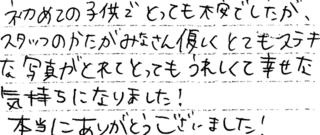 初めての子供でとっても不安でしたが、
スタッフのかたがみなさん優しくとてもステキ
な写真がとれてとってもうれしくて幸せな
気持ちになりました!
本当にありがとうございました!